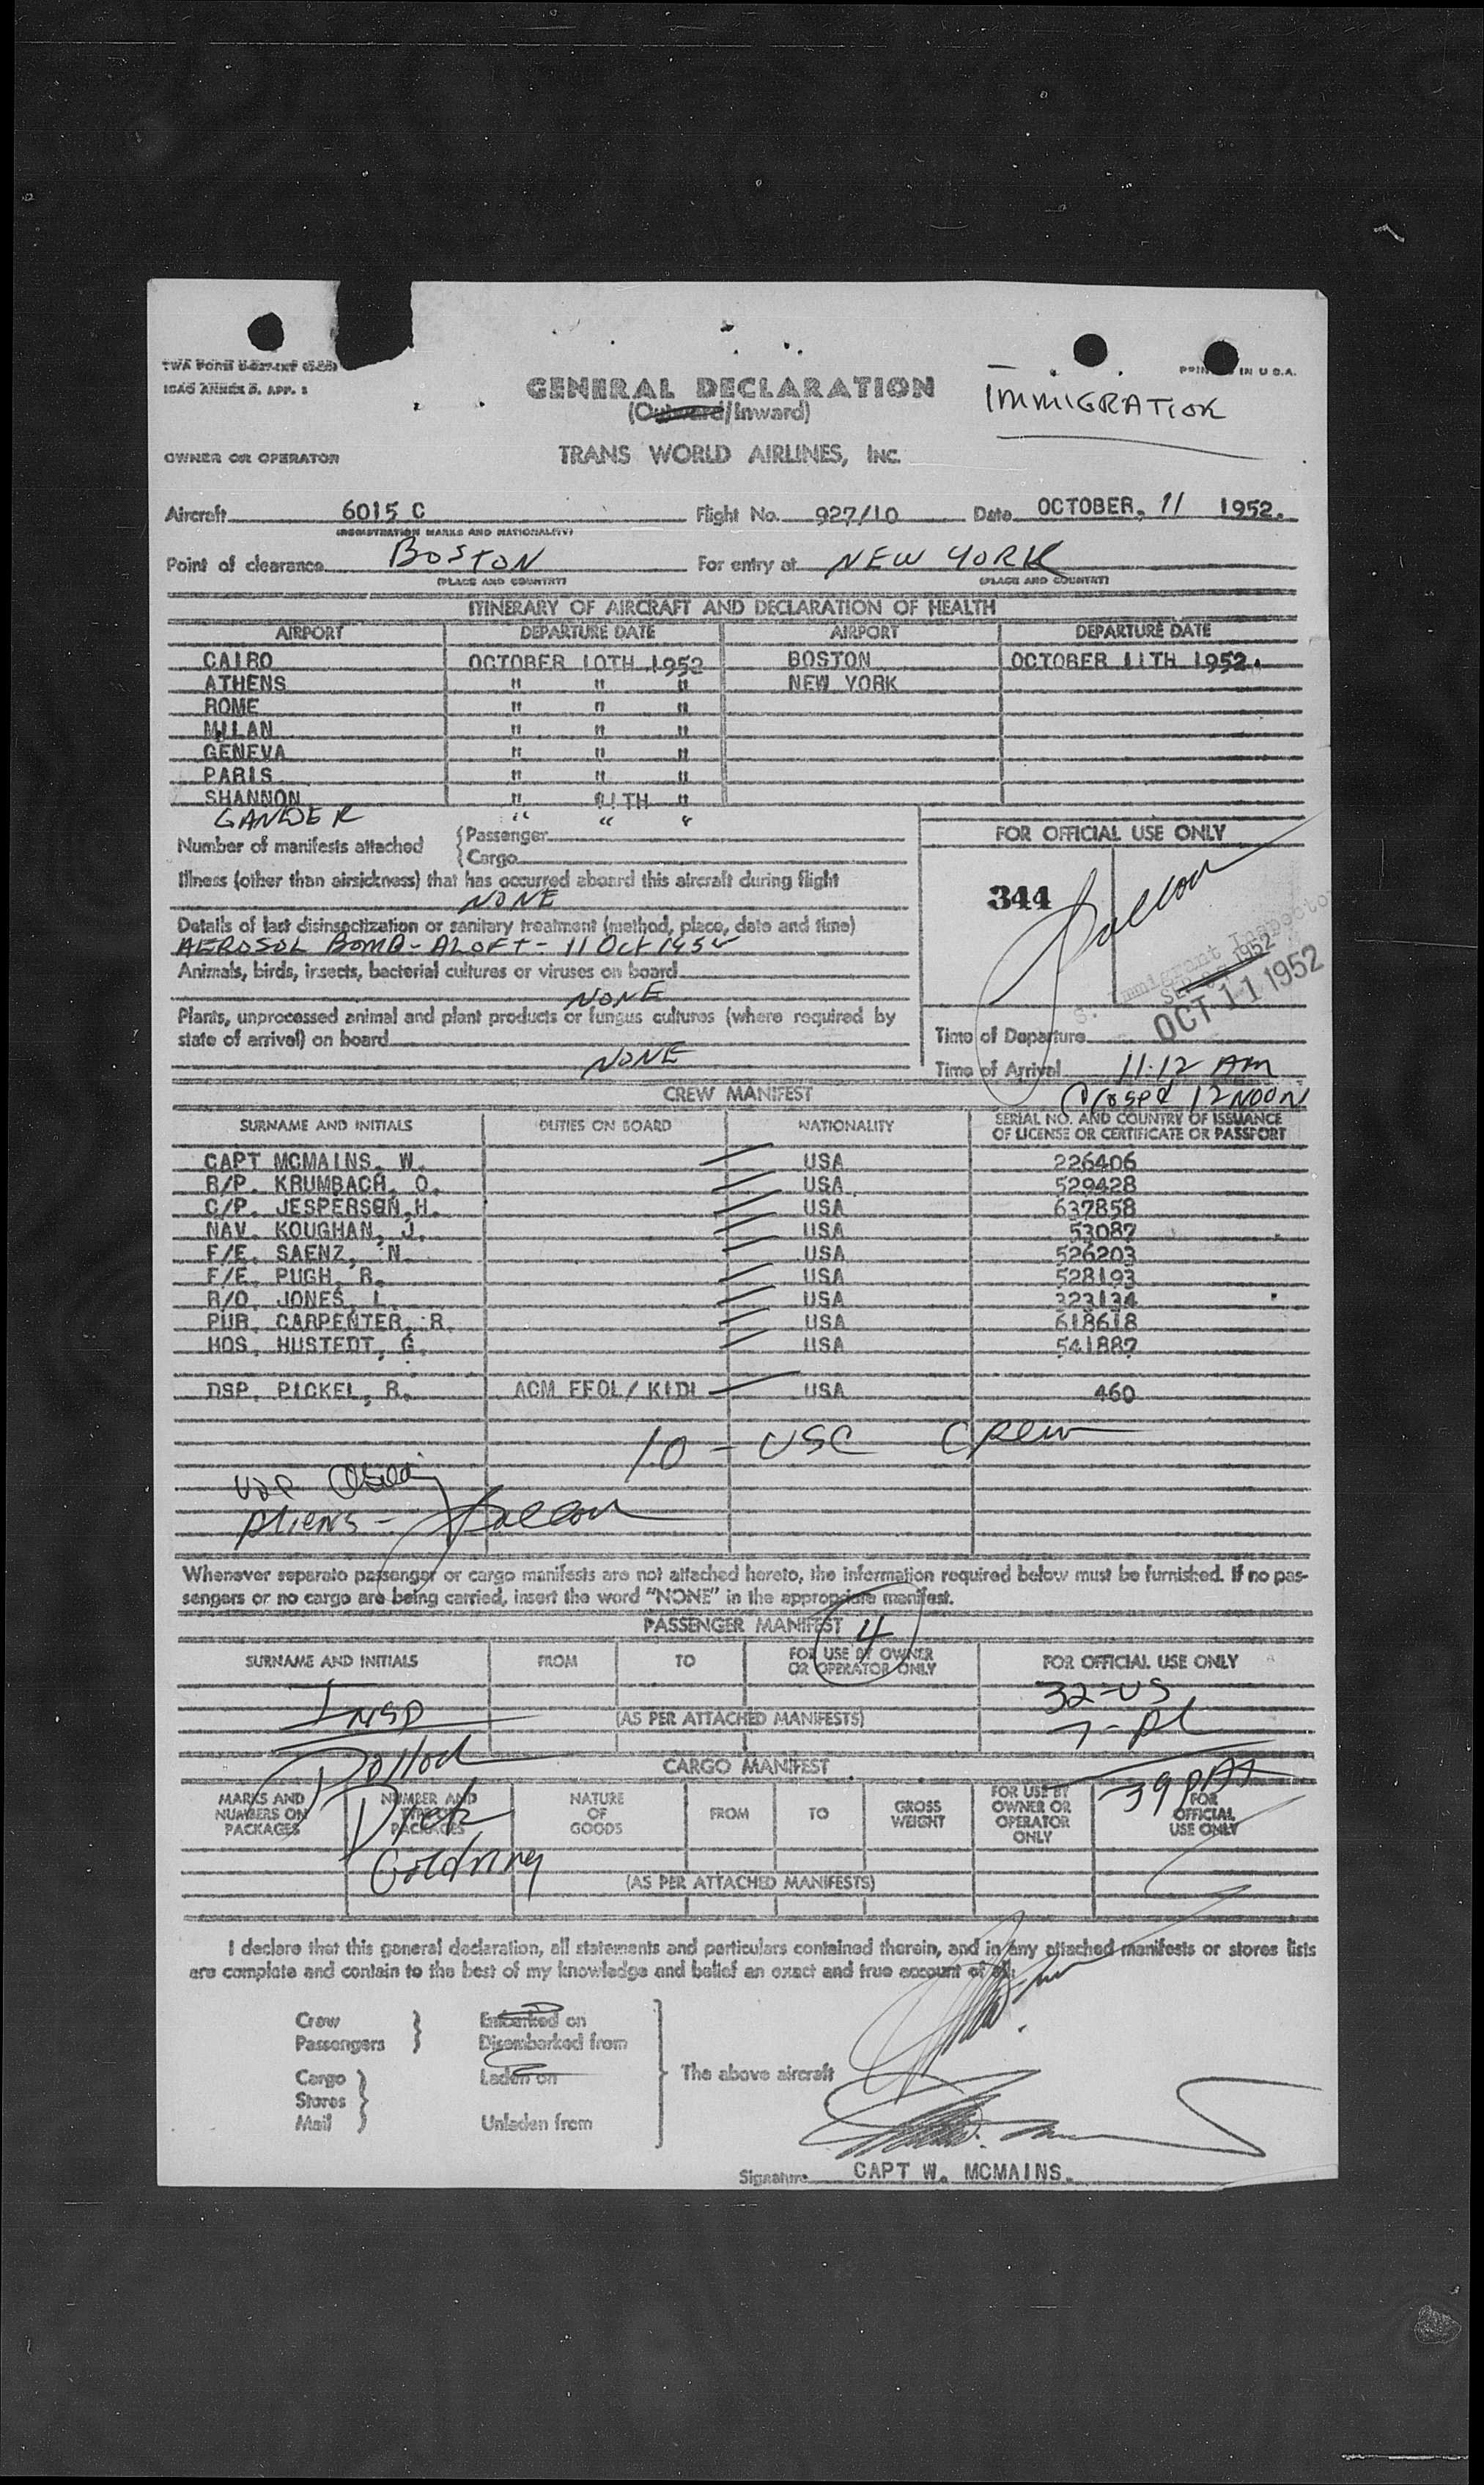 ICAO ANNEX 9, APP. 1
PRINTED IN U.S.A.
GENERAL DECLARATION
(Outward/Inward)
IMMIGRATION
OWNER OR OPERATOR
TRANS WORLD AIRLINES, INC.
Aircraft 6015 C Flight No. 927/10 Date OCTOBER, 11 1952.
(REGISTRATION MARKS AND NATIONALITY)
Point of clearance BOSTON For entry at NEW YORK
(PLACE AND COUNTRY) (PLACE AND COUNTRY)
ITINERARY OF AIRCRAFT AND DECLARATION OF HEALTH
AIRPORT DEPARTURE DATE AIRPORT DEPARTURE DATE
CAIRO OCTOBER 10TH 1952 BOSTON OCTOBER 11TH 1952.
ATHENS " " " NEW YORK
ROME " " "
MILAN " " "
GENEVA " " "
PARIS " " "
SHANNON " 11TH "
GANDER " " "
Number of manifests attached { Passenger
{ Cargo
FOR OFFICIAL USE ONLY
Illness (other than airsickness) that has occurred aboard this aircraft during flight
NONE
344
Details of last disinsectization or sanitary treatment (method, place, date and time)
AEROSOL BOMB - ALOFT - 11 Oct 1952
Immigrant Inspector
OCT 11 1952
Animals, birds, insects, bacterial cultures or viruses on board
NONE
Plants, unprocessed animal and plant products or fungus cultures (where required by
state of arrival) on board
NONE
Time of Departure
Time of Arrival 11:12 AM
12 NOON
CREW MANIFEST
SURNAME AND INITIALS DUTIES ON BOARD NATIONALITY SERIAL NO. AND COUNTRY OF ISSUANCE
OF LICENSE OR CERTIFICATE OR PASSPORT
CAPT MCMAINS, W. USA 226406
R/P. KRUMBACH, O. USA 529428
C/P. JESPERSON,H. USA 637858
NAV. KOUGHAN, J. USA 53087
F/E. SAENZ, N. USA 526203
F/E. PUGH, R. USA 528193
R/O. JONES, L. USA 323134
PUR. CARPENTER, R. USA 618618
HOS. HUSTEDT, G. USA 541887
DSP. PICKEL, R. ACM FFOL/ KIDL USA 460
10 - USC Crew
Aliens -
Whenever separate passenger or cargo manifests are not attached hereto, the information required below must be furnished. If no pas-
sengers or no cargo are being carried, insert the word "NONE" in the appropriate manifest.
PASSENGER MANIFEST 4
SURNAME AND INITIALS FROM TO FOR USE BY OWNER
OR OPERATOR ONLY FOR OFFICIAL USE ONLY
32-US
INSP (AS PER ATTACHED MANIFESTS)
CARGO MANIFEST
39
MARKS AND
NUMBERS ON
PACKAGES NUMBER AND
TYPE OF
PACKAGES NATURE
OF
GOODS FROM TO GROSS
WEIGHT FOR USE BY
OWNER OR
OPERATOR
ONLY FOR
OFFICIAL
USE ONLY
(AS PER ATTACHED MANIFESTS)
I declare that this general declaration, all statements and particulars contained therein, and in any attached manifests or stores lists
are complete and contain to the best of my knowledge and belief an exact and true account of all:
Crew Embarked on
Passengers Disembarked from
Cargo Laden on The above aircraft
Stores
Mail Unladen from
Signature CAPT W. MCMAINS.